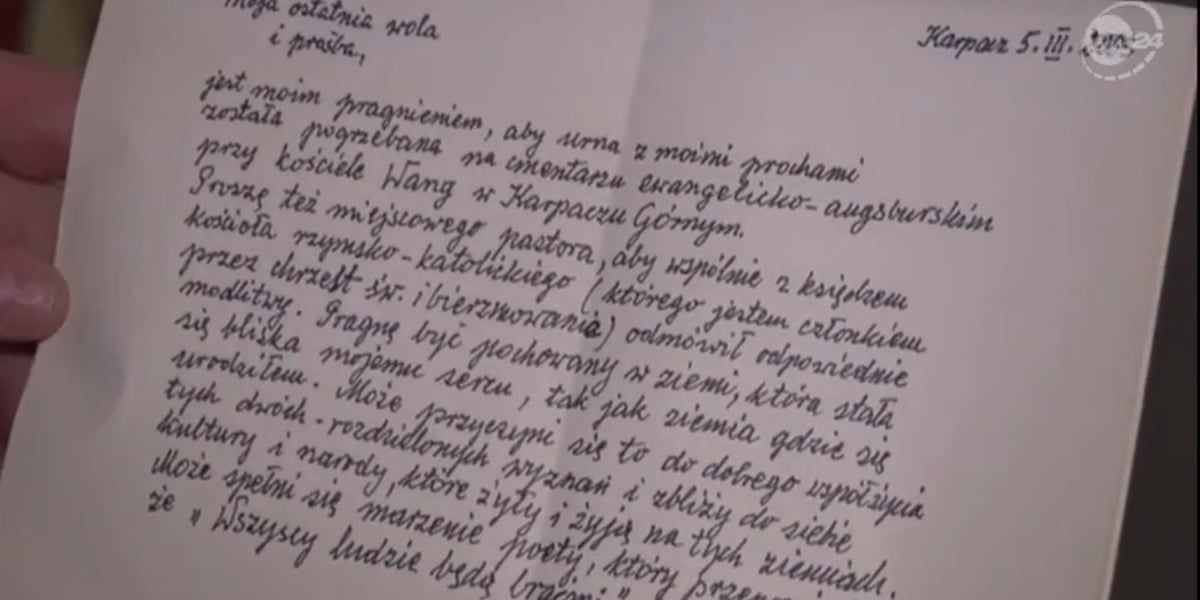 Moja ostatnia wola
i prośba,
Karpacz 5.III.
24
jest moim pragnieniem, aby urna z moimi prochami
została pogrzebana na cmentarzu ewangelicko-augsburskim
przy kościele Wang w Karpaczu Górnym.
Proszę też miejscowego pastora, aby wspólnie z księdzem
kościoła rzymsko-katolickiego (którego jestem członkiem
przez chrzest św. i bierzmowanie) odmówił odpowiednie
modlitwy. Pragnę być pochowany w ziemi, która stała
się bliska mojemu sercu, tak jak ziemia gdzie się
urodziłem. Może przyczyni się to do dobrego współżycia
tych dwóch-rozdzielonych wyznań i zbliży do siebie
kultury i narody, które żyły i żyją na tych ziemiach.
Może spełni się marzenie poety, który
że "Wszyscy ludzie będą braćmi"